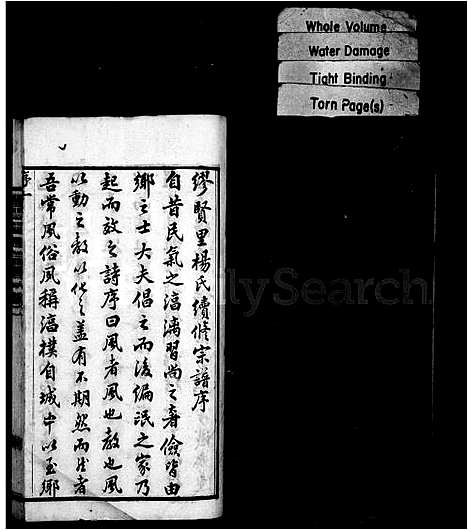 Whole Volume
Water Damage
Tight Binding
Torn Page(s)
繆賢里楊氏續修宗譜序
自昔民氣之湻漓習尚之奢儉皆由
鄉之士大夫倡之而後編氓之家乃
起而效之詩序曰風者風也教也風
以動之教以化之蓋有不期然而然者
吾常風俗夙稱湻樸自城中以至鄉
序
FamilySearch